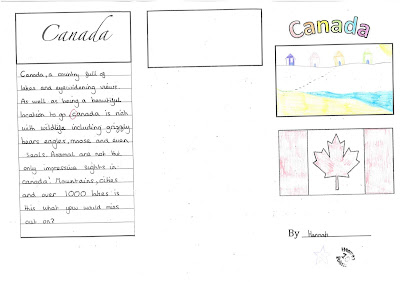 Canada
Canada, a country full of
lakes and eyewidening views.
As well as being a beautiful
location to go Canada is rich
with wildlife including grizzly
bears eagles, moose and even
seals. Animal are not the
only impressive sights in
canada! Mountains, cities
and over 1000 lakes is
this what you would miss
out on?
Canada
By Hannah